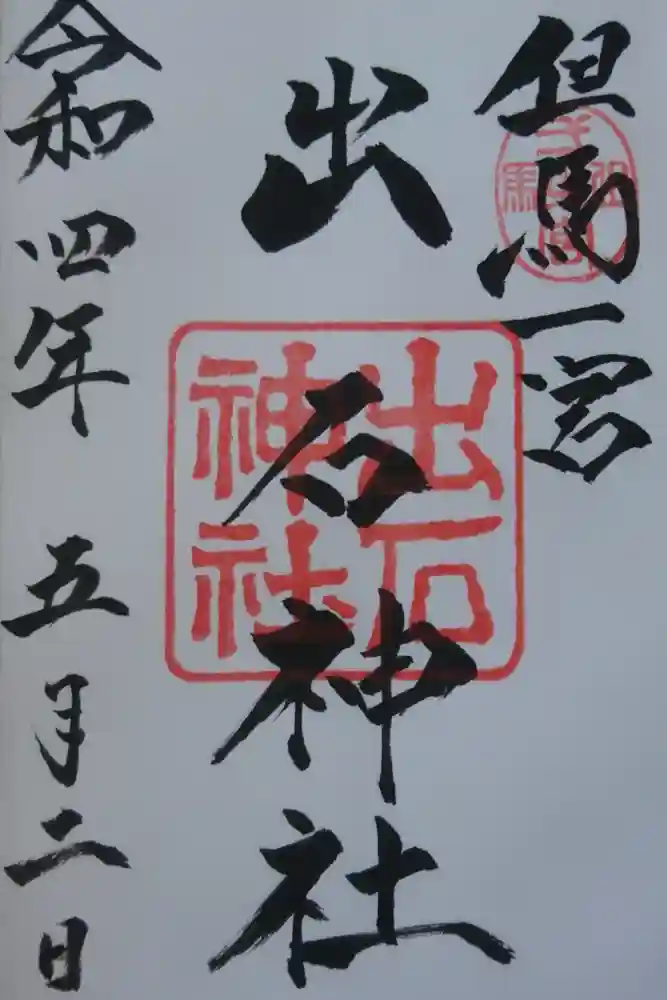 但馬一宮
出石神社
令和四年 五月二日
出石
神社